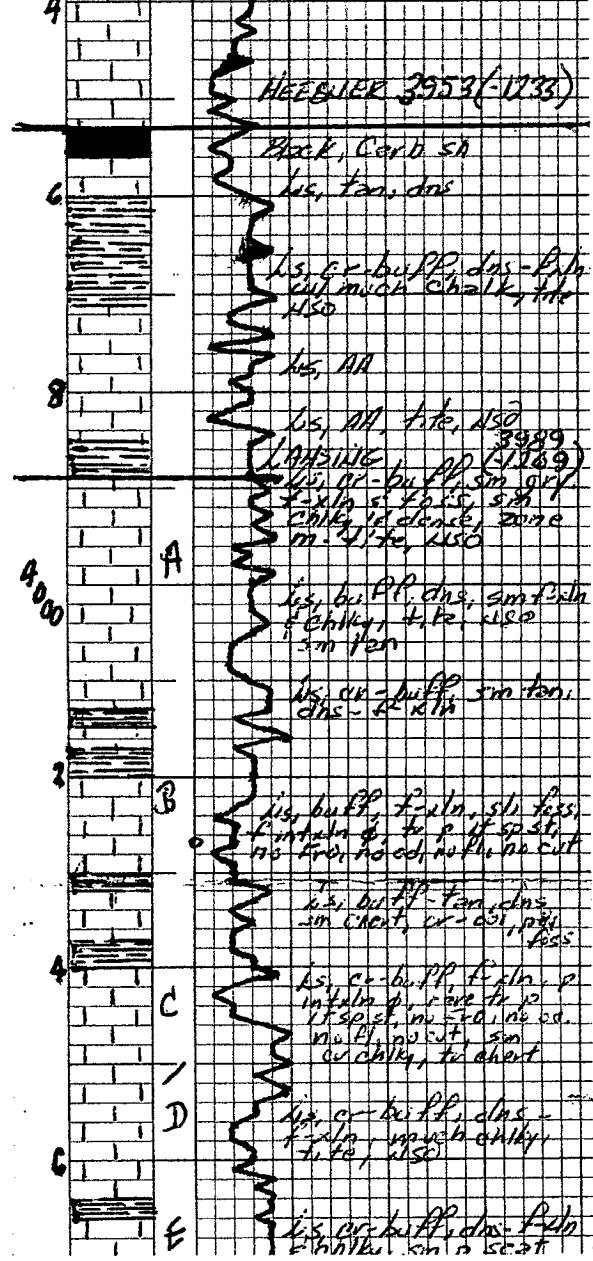 4
HEEBNER 3953 (-1233)
Black, Carb sh
6
Ls, tan, dns
Ls, cr-buff, dns-f-xln
w/ much chalk, tite
NSO
Ls, AA
8
Ls, AA, tite, NSO
3989
LANSING (-1269)
Ls, cr-buff, sm gry,
f-xln s foss, sm
chlky, dense, zone
m-tite, NSO
A
4000
Ls, buff, dns, sm f-xln
& chlky, tite, NSO
sm tan
Ls, cr-buff, sm tan,
dns-f-xln
2
B
Ls, buff, f-xln, sli foss,
f intxln ø, tr p lt sp st,
no fro, no od, no fl, no cut
Ls, buff-tan, dns
sm chert, cr-ool,
foss
4
C
Ls, cr-buff, f-xln, p
intxln ø, rare tr p
lt sp st, no fro, no od,
no fl, no cut, sm
cr chlky, tr chert
/
D
Ls, cr-buff, dns-
f-xln, much chlky,
tite, NSO
6
E
Ls, cr-buff, dns-f-xln
chlky, sm p scat